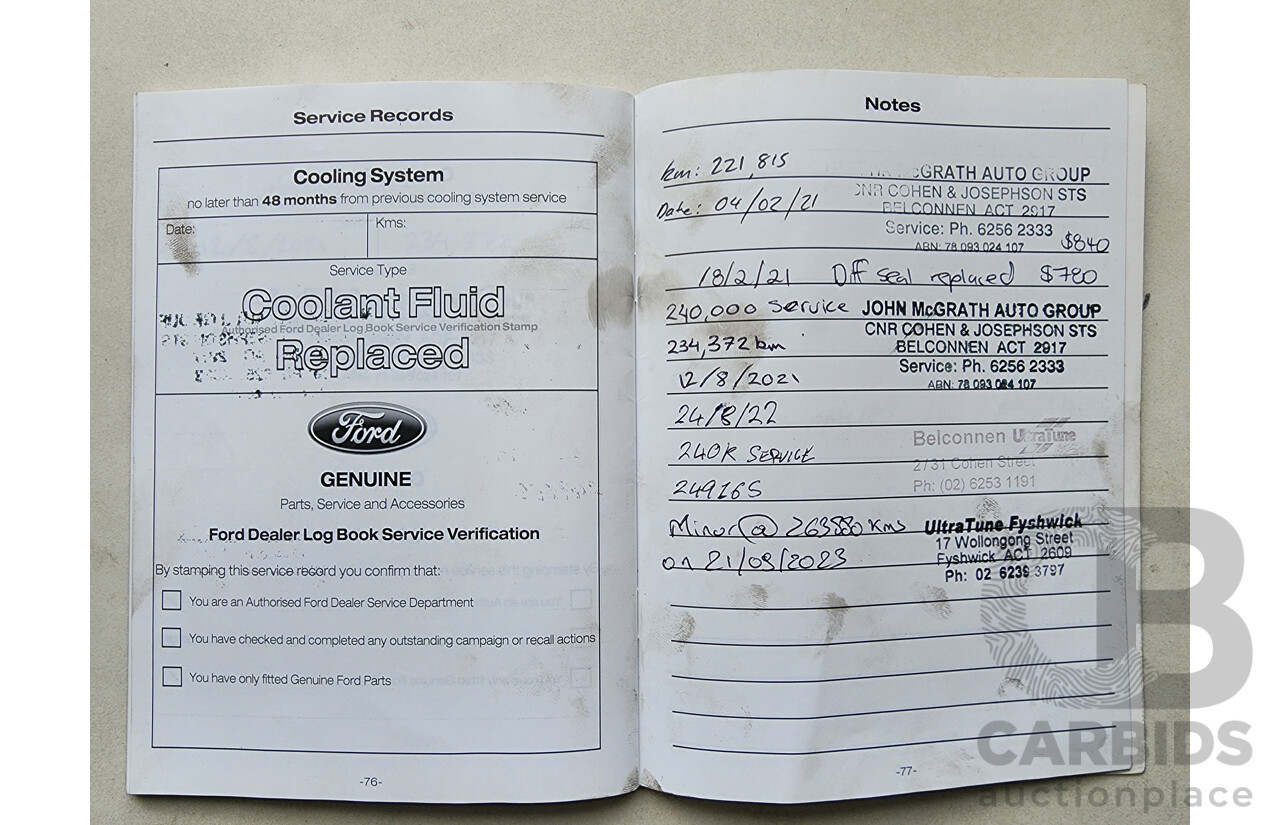 Service Records
Cooling System
no later than 48 months from previous cooling system service
Date:
Kms:
Service Type
Coolant Fluid
Authorised Ford Dealer Log Book Service Verification Stamp
Replaced
Ford
GENUINE
Parts, Service and Accessories
Ford Dealer Log Book Service Verification
By stamping this service record you confirm that:
You are an Authorised Ford Dealer Service Department
You have checked and completed any outstanding campaign or recall actions
You have only fitted Genuine Ford Parts
-76-
Notes
km: 221,815
McGRATH AUTO GROUP
Date: 04/02/21
CNR COHEN & JOSEPHSON STS
BELCONNEN ACT 2917
Service: Ph. 6256 2333
ABN: 78 093 024 107
$840
18/2/21 Diff seal replaced $780
240,000 Service
JOHN McGRATH AUTO GROUP
CNR COHEN & JOSEPHSON STS
234,372 km
BELCONNEN ACT 2917
Service: Ph. 6256 2333
12/8/2021
ABN: 78 093 024 107
24/8/22
240K SERVICE
Belconnen UltraTune
2/31 Cohen Street
249165
Ph: (02) 6253 1191
Minor @ 263880 Kms
UltraTune Fyshwick
17 Wollongong Street
on 21/09/2023
Fyshwick ACT 2609
Ph: 02 6239 3797
-77-
CARBIDS
auctionplace